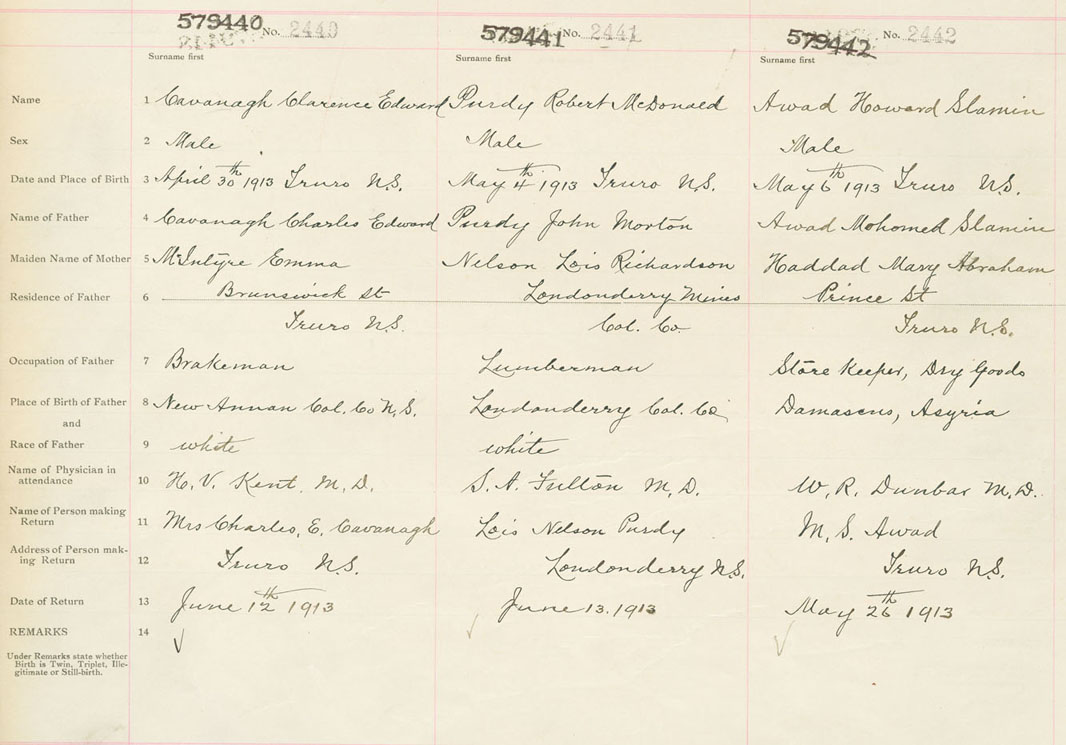 579440 No. 2440 579441 No. 2441 579442 No. 2442
Surname first Surname first Surname first
Name 1 Cavanagh Clarence Edward Purdy Robert McDonald Awad Howard Slamin
Sex 2 Male Male Male
Date and Place of Birth 3 April 30th 1913 Truro N.S. May 4th 1913 Truro N.S. May 6th 1913 Truro N.S.
Name of Father 4 Cavanagh Charles Edward Purdy John Morton Awad Mohomed Slamin
Maiden Name of Mother 5 McIntyre Emma Nelson Lois Richardson Haddad Mary Abraham
Residence of Father 6 Brunswick St Londonderry Mines Prince St
Truro N.S. Col. Co Truro N.S.
Occupation of Father 7 Brakeman Lumberman Store Keeper, Dry Goods
Place of Birth of Father 8 New Annan Col. Co N.S. Londonderry Col. Co Damascus, Asyria
and
Race of Father 9 white white
Name of Physician in
attendance 10 H. V. Kent. M.D. S. A. Fulton M.D. W. R. Dunbar M.D.
Name of Person making
Return 11 Mrs Charles, E. Cavanagh Lois Nelson Purdy M. S. Awad
Address of Person mak-
ing Return 12 Truro N.S. Londonderry N.S. Truro N.S.
Date of Return 13 June 12th 1913 June 13. 1913 May 26th 1913
REMARKS 14
Under Remarks state whether
Birth is Twin, Triplet, Ille-
gitimate or Still-birth.